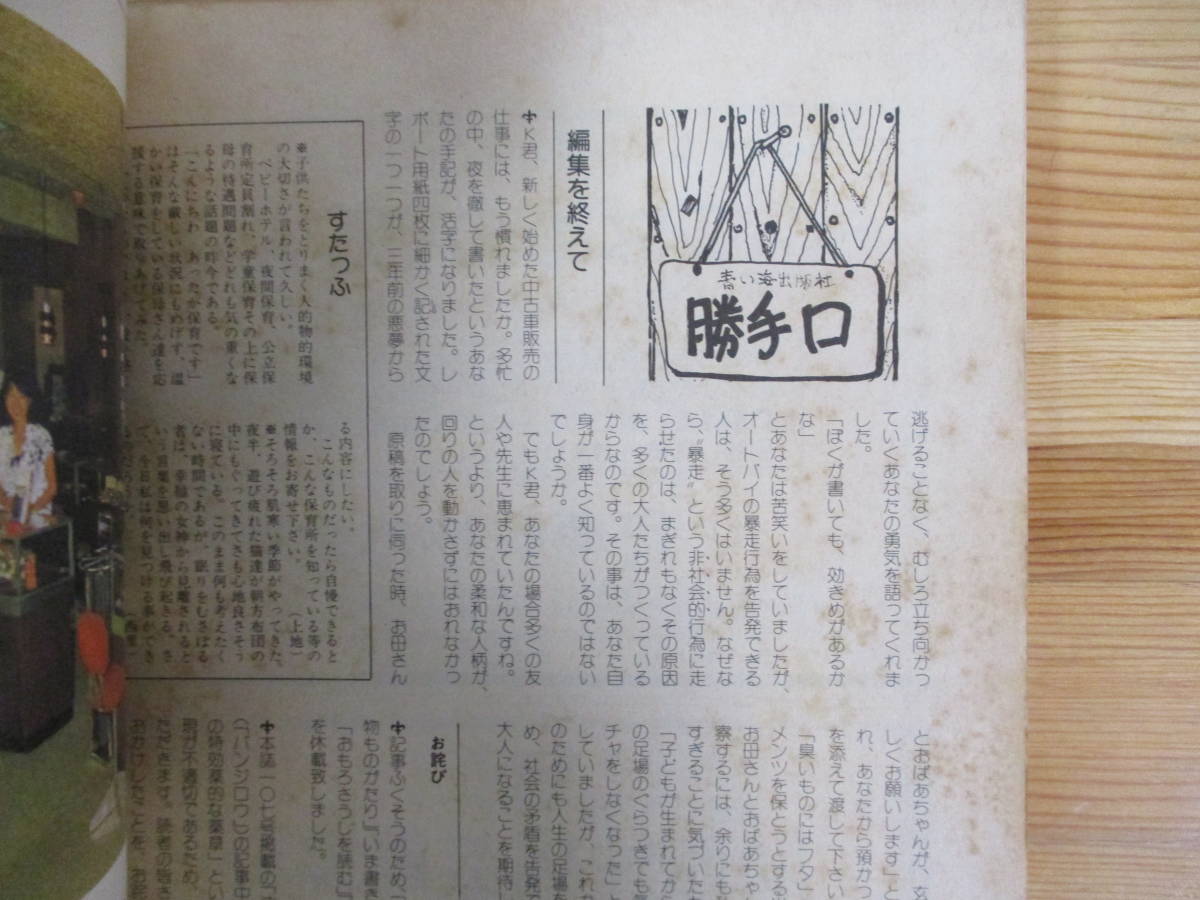 青い海出版社
勝手口
編集を終えて
✣K君、新しく始めた中古車販売の
仕事には、もう慣れましたか。多忙
の中、夜を徹して書いたというあな
たの手記が、活字になりました。レ
ポート用紙四枚に細かく記された文
字の一つ一つが、三年前の悪夢から
逃げることなく、むしろ立ち向かっ
ていくあなたの勇気を語ってくれま
した。
「ぼくが書いても、効きめがあるか
な」
とあなたは苦笑いをしていましたが、
オートバイの暴走行為を告発できる
人は、そう多くはいません。なぜな
ら、〝暴走〟という非社会的行為に走
らせたのは、まぎれもなくその原因
を、多くの大人たちがつくっている
からなのです。その事は、あなた自
身が一番よく知っているのではない
でしょうか。
でもK君、あなたの場合多くの友
人や先生に恵まれていたんですね。
というより、あなたの柔和な人柄が、
回りの人を動かさずにはおれなかっ
たのでしょう。
原稿を取りに伺った時、お母さん
とおばあちゃんが、
しくお願いします」と
れ、あなたから預かっ
を添えて渡して下さい
「臭いものにはフタ」
メンツを保とうとする
お母さんとおばあちゃ
察するには、余りにも
すぎることに気づいた
「子どもが生まれてから
の足場のぐらつきでも
チャをしなくなった」と
していましたが、これ
のためにも人生の足場を
め、社会の矛盾を告発で
大人になることを期待し
お詫び
✣記事ふくそうのため、
物ものがたり』『いま書き
「おもろさうしを読む」
を休載致しました。
✣本誌一〇七号掲載の
(「バンジロウ」の記事中
の特効薬的な薬草」とい
現が不適切であるため、
ただきます。読者の皆さ
おかけしたことを、お
すたっふ
※子供たちをとりまく人的物的環境
の大切さが言われて久しい。
ベビーホテル、夜間保育、公立保
育所定員割れ、学童保育その上に保
母の待遇問題などどれも気の重くな
るような話題の昨今である。
「こんにちわ あったか保育です」
はそんな厳しい状況にもめげず、温
かい保育をしている保母さん達を応
援する意味で取りあげてみた。
る内容にしたい。
こんなものだったら自慢できると
か、こんな保育所を知っている等の
情報をお寄せ下さい。 (上地)
※そろそろ肌寒い季節がやってきた。
夜半、遊び疲れた猫達が朝方布団の
中にもぐってきてさも心地良さそう
に寝ている。このまま何も考えたく
ない時間であるが、眠りをむさぼる
者は、幸福の女神から見離されると
いう言葉を思い出し飛び起きる。さ
て、今日私は何を見つける事ができ